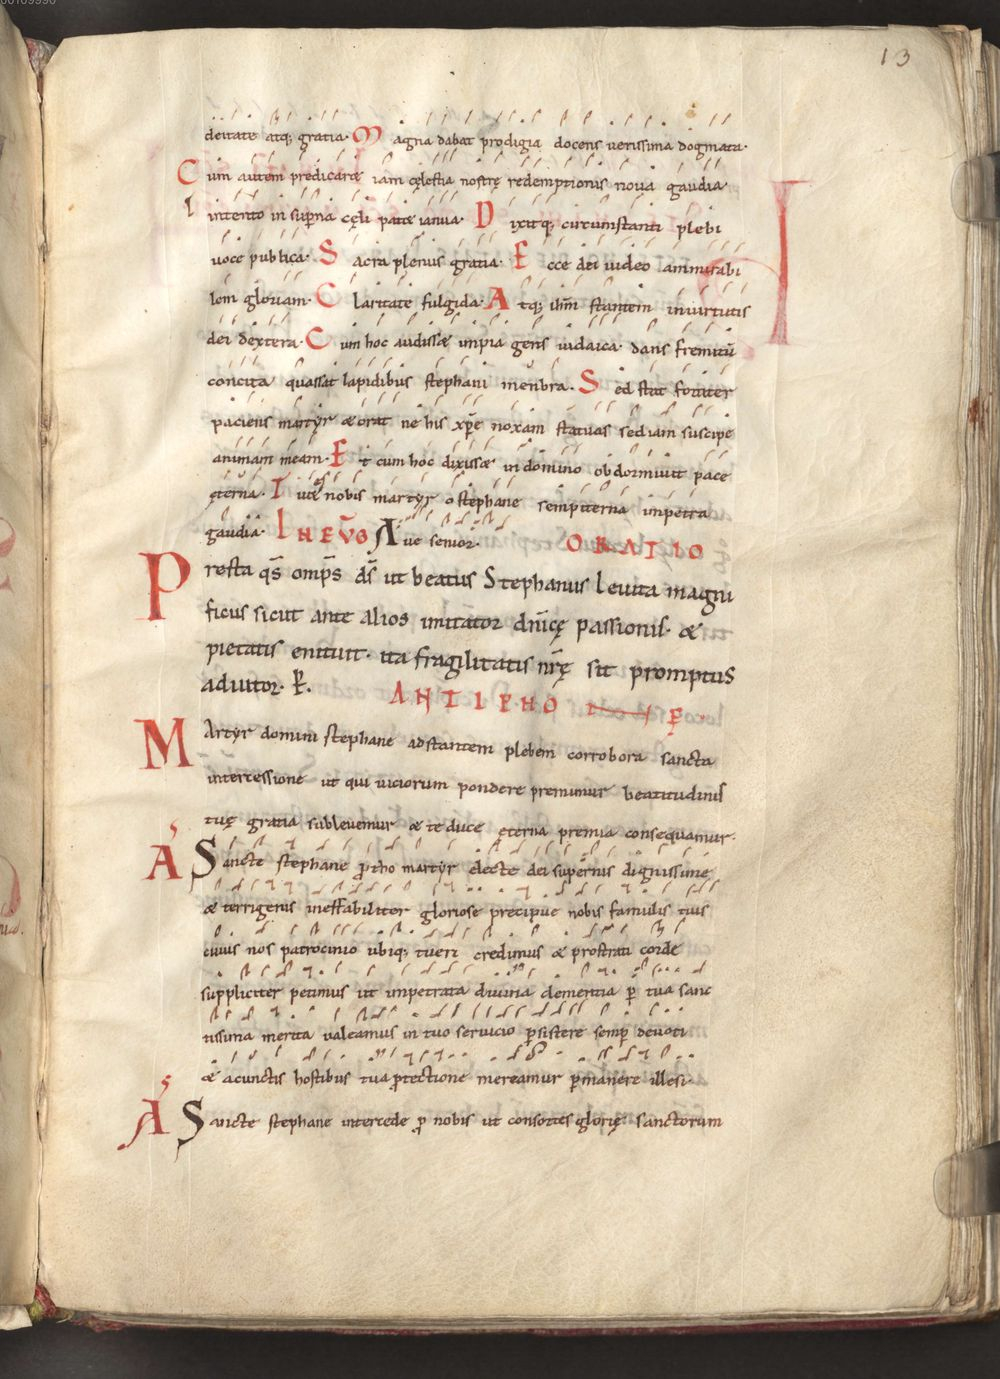 00109990
13
deitate atq; gratia. Magna dabat prodigia docens uerissima dogmata.
Cum autem predicaret iam cęlestia nostrę redemptionis noua gaudia.
Intento in sup̄na cęli patet ianua. Dixitq; circumstanti plebi
uoce publica. Sacra plenus gratia. Ecce dei uideo ammirabi
lem gloriam. Claritate fulgida. Atq; ih̄m stantem in uirtutis
dei dextera. Cum hoc audisset impia gens iudaica. dans fremitū
concita quassat lapidibus stephani menbra. Sed stat fortiter
paciens martyr & orat ne his xp̄e noxam statuas sed iam suscipe
animam meam. Et cum hoc dixisset in domino obdormiuit pace
ęterna. nobis martyr o stephane sempiterna impetra
gaudia. IN EVG̅ Aue senior. ORATIO
Presta qs̄ omp̄s ds̄ ut beatus Stephanus leuita magni
ficus sicut ante alios imitator dn̄icę passionis. &
pietatis enituit. ita fragilitatis nr̄ę sit promptus
adiutor. P̄. ANTIPHO
Martyr domini stephane adstantem plebem corrobora sancta
intercessione ut qui uiciorum pondere premimur beatitudinis
tuę gratia subleuemur & te duce ęterna premia consequamur.
A Sancte stephane p̄tho martyr electe dei supernis dignissime
& terrigenis ineffabiliter gloriose precipue nobis famulis tuis
cuius nos patrocinio ubiq; tueri credimus & prostrati corde
suppliciter petimus ut impetrata diuina clementia p̄ tua sanc
tissima merita ualeamus in tuo seruicio p̄sistere semp̄ deuoti
& a cunctis hostibus tua p̄tectione mereamur p̄manere illesi.
A Sancte stephane intercede p̄ nobis ut consortes glorię sanctorum